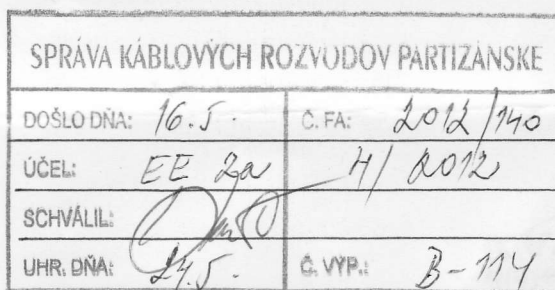 SPRÁVA KÁBLOVÝCH ROZVODOV PARTIZÁNSKE
DOŠLO DŇA: 16.5. Č. FA: 2012/140
ÚČEL: EE za 4/2012
SCHVÁLIL:
UHR. DŇA: 24.5. Č. VÝP.: B-114